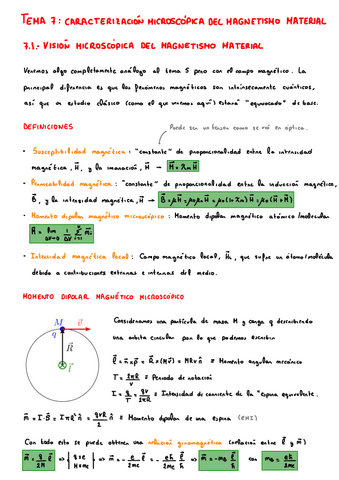 TEMA 7: CARACTERIZACIÓN MICROSCÓPICA DEL MAGNETISMO MATERIAL
7.1.- VISIÓN MICROSCÓPICA DEL MAGNETISMO MATERIAL
Veremos algo completamente análogo al tema 5 pero con el campo magnético. La
principal diferencia es que los fenómenos magnéticos son intrínsecamente cuánticos,
así que un estudio clásico (como el que veremos aquí) estará "equivocado" de base.
DEFINICIONES
Puede ser un tensor como se vio en óptica.
- Susceptibilidad magnética: "constante" de proporcionalidad entre la intensidad
magnética, H⃗, y la imanación, M⃗ → M⃗ = χₘH⃗
- Permeabilidad magnética: "constante" de proporcionalidad entre la inducción magnética,
B⃗, y la intensidad magnética, H⃗ → B⃗ = μH⃗ = μ₀μᵣH⃗ = μ₀(1+χₘ)H⃗ = μ₀(H⃗+M⃗)
- Momento dipolar magnético microscópico: Momento dipolar magnético atómico/molecular
M⃗ = lim ΔV→0 1/ΔV Σ m⃗ᵢ
- Intensidad magnética local: Campo magnético local, H⃗ₗ, que sufre un átomo/molécula
debido a contribuciones externas e internas del medio.
MOMENTO DIPOLAR MAGNÉTICO MICROSCÓPICO
M v⃗
q
R⃗
l⃗
Consideramos una partícula de masa M y carga q describiendo
una órbita circular por lo que podemos escribir
l⃗ = r⃗ × p⃗ = R⃗ × (Mv⃗) = MRv n̂ ≡ Momento angular mecánico
T = 2πR/v ≡ Periodo de rotación
I = q/T = qv/2πR ≡ Intensidad de corriente de la "espira equivalente".
m⃗ = I·S⃗ = IπR² n̂ = qvR/2 n̂ ≡ Momento dipolar de una espira (EMI)
Con todo esto se puede obtener una relación giromagnética (relación entre l⃗ y m⃗)
m⃗ = q/2M l⃗ ⇒ { q = e M = mₑ } ⇒ m⃗ = - e/2mₑ l⃗ = - eℏ/2mₑ l⃗/ℏ ⇒ m⃗ = -m_B l⃗/ℏ con m_B = eℏ/2mₑ